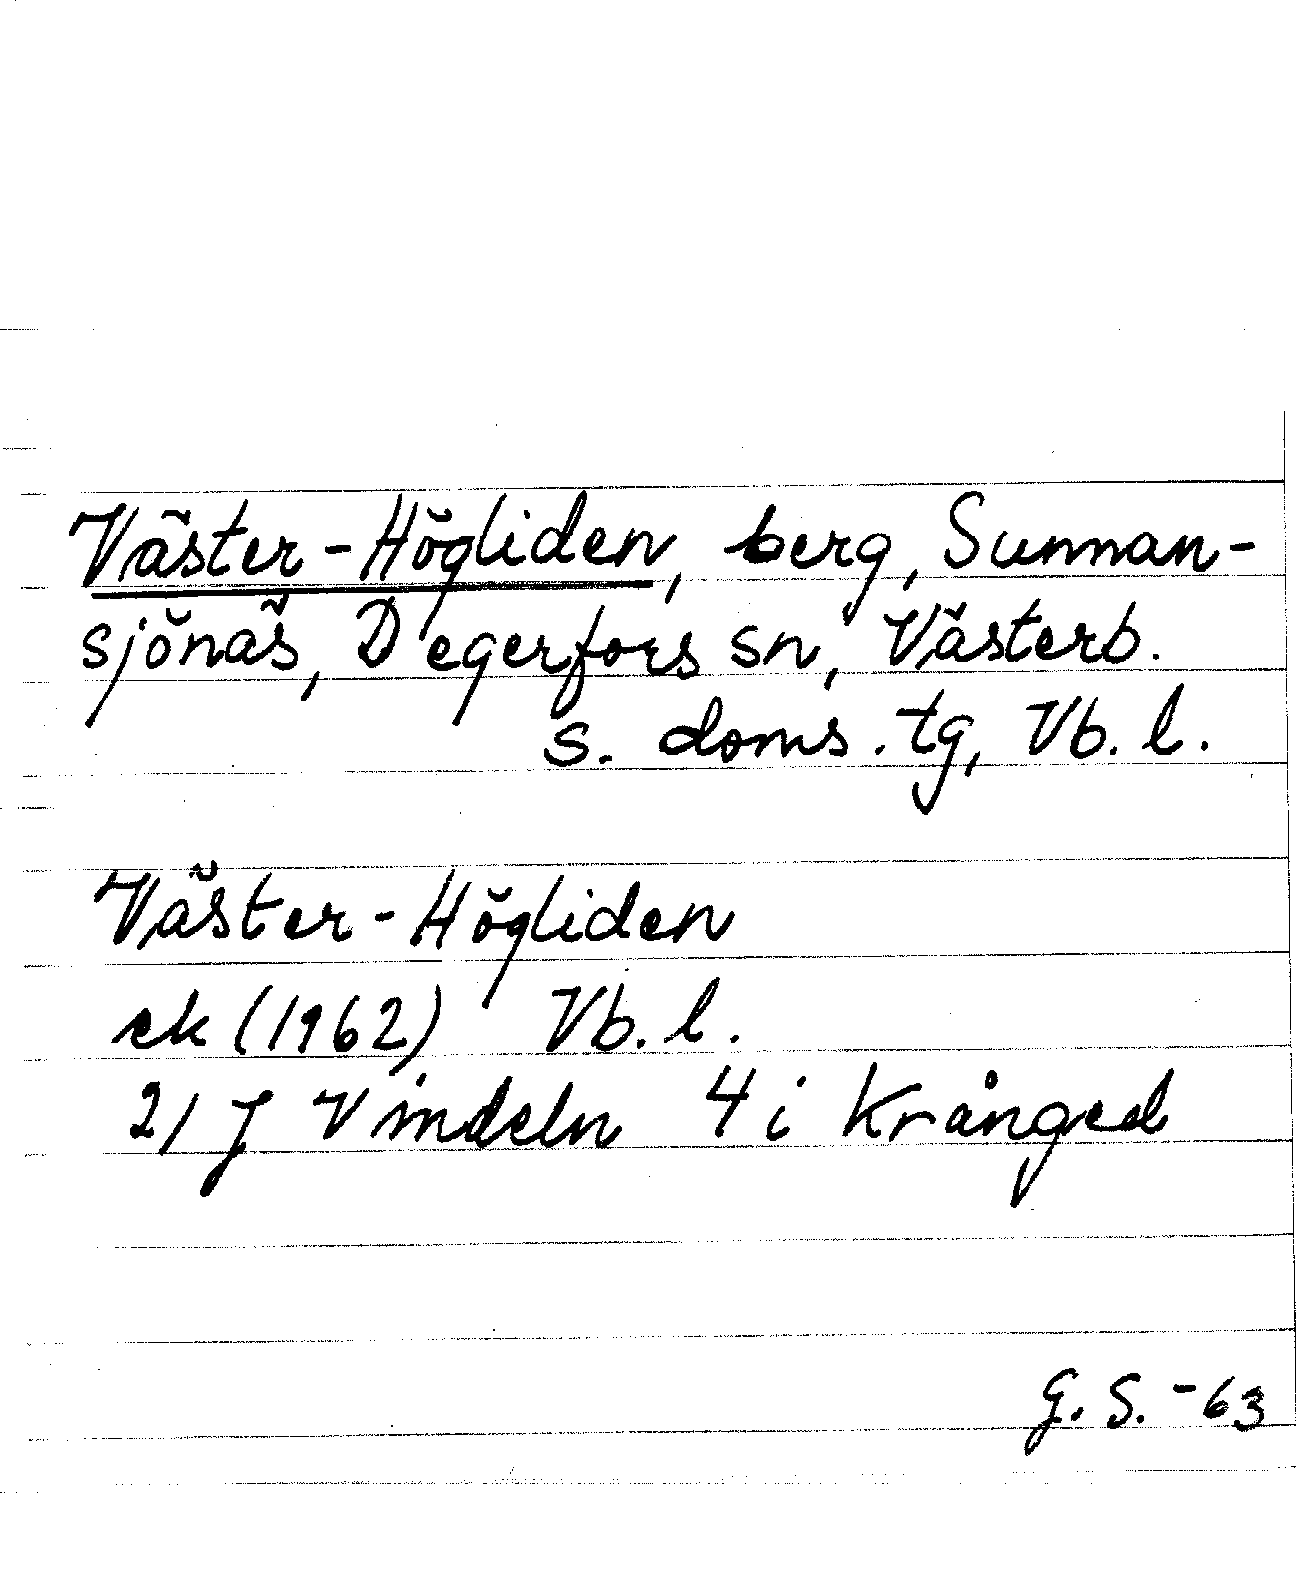 Väster-Högliden, berg, Sunnan-
sjönäs, Degerfors sn, Västerb.
s. doms.tg, Vb. l.
Väster-Högliden
ek (1962) Vb. l.
21 J Vindeln 4 i Krånged
G. S. -63